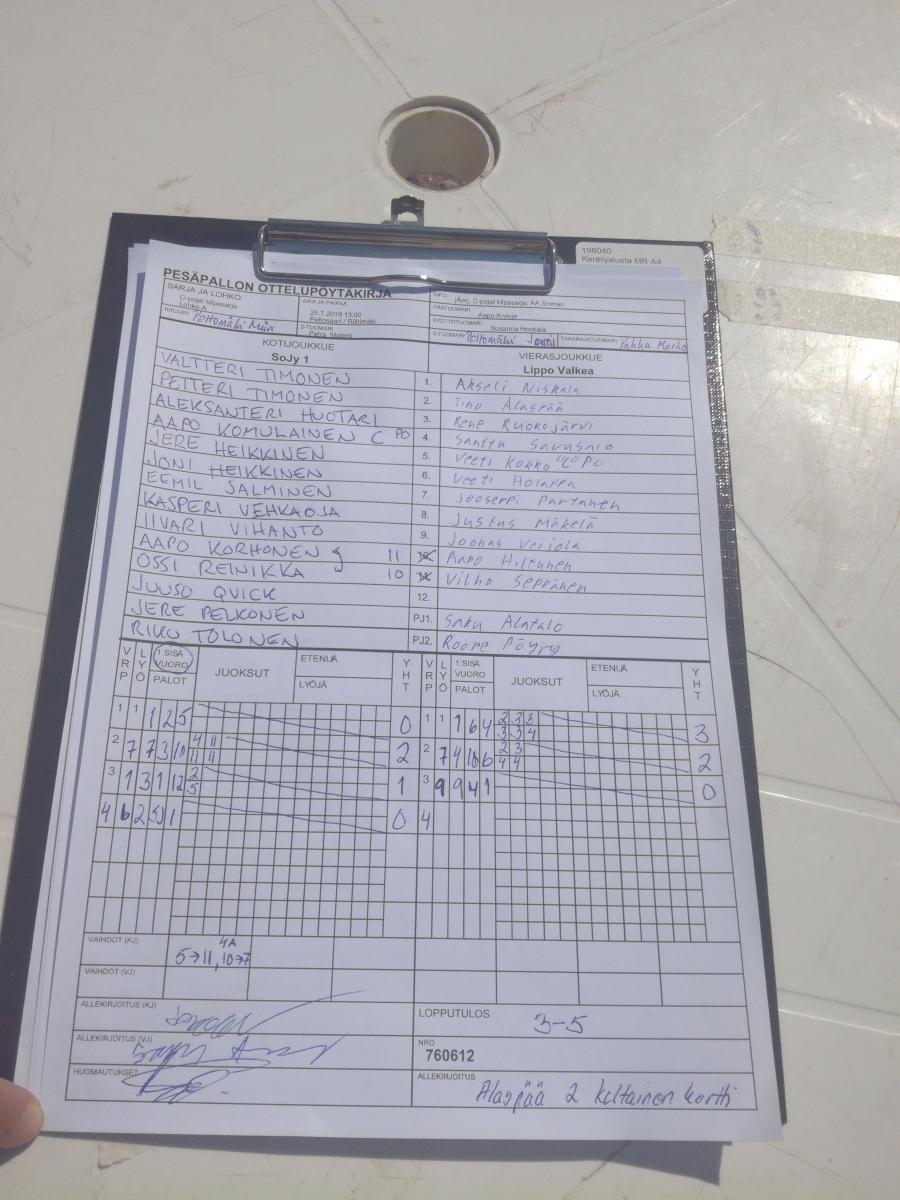 198040
Keräilyalusta MR A4
PESÄPALLON OTTELUPÖYTÄKIRJA
SARJA JA LOHKO
C-pojat kilpasarja
Lohko A
AIKA JA PAIKKA
25.7.2019 13:00
Peltosaari / Riihimäki
INFO
jÄorj, C-pojat kilpasarja: AA Sininen
PÄÄTUOMARI
Aapo Kivioja
SYÖTTÖTUOMARI
Susanna Honkala
KIRJURI Poltomäki Miia
2-TUOMARI
3-TUOMARI Poltomäki
TAKARAJATUOMARI Pahha Marko
KOTIJOUKKUE
SoJy 1
VIERASJOUKKUE
Lippo Valkea
VALTTERI TIMONEN 1. Akseli Niskala
PETTERI TIMONEN 2. Tino Alaspää
ALEKSANTERI HUOTARI 3. Rene Ruokojärvi
AAPO KOMULAINEN C PO 4. Santtu Savusalo
JERE HEIKKINEN 5. Veeti Kokko "C" PO
JONI HEIKKINEN 6. Veeti Holappa
EEMIL SALMINEN 7. Jooseppi Partanen
KASPERI VEHKAOJA 8. Justus Mäkelä
IIVARI VIHANTO 9. Joonas Veijola
AAPO KORHONEN J 11 10. Aapo Hiltunen
OSSI REINIKKA 10 11. Vilho Seppänen
JUUSO QUICK 12.
JERE PELKONEN PJ1. Saku Alatalo
RIKU TOLONEN PJ2. Roope Pöyry
VRP LYÖ 1.SISÄ VUORO PALOT JUOKSUT ETENIJÄ LYÖJÄ YHT VRP LYÖ 1.SISÄ VUORO PALOT JUOKSUT ETENIJÄ LYÖJÄ YHT
1 1 1 2 5 0 1 1 1 6 4 2 3 3 3
3 3 4
2 7 7 3 10 4 11 2 2 7 4 10 6 2 3 2
11 11 4 4
3 1 3 1 12 2 1 3 9 9 4 1 0
5
4 6 2 5 1 0 4
VAIHDOT (KJ) 4A
5→11, 10→7
VAIHDOT (VJ)
ALLEKIRJOITUS (KJ)
LOPPUTULOS 3-5
ALLEKIRJOITUS (VJ)
NRO
760612
HUOMAUTUKSET
ALLEKIRJOITUS
Alaspää 2 keltainen kortti